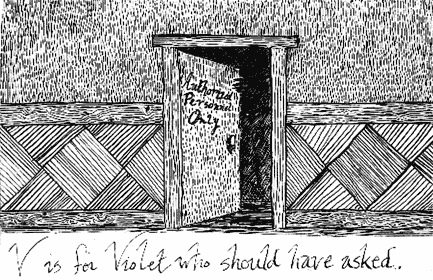 Authorized
Personal
Only
V is for Violet who should have asked..